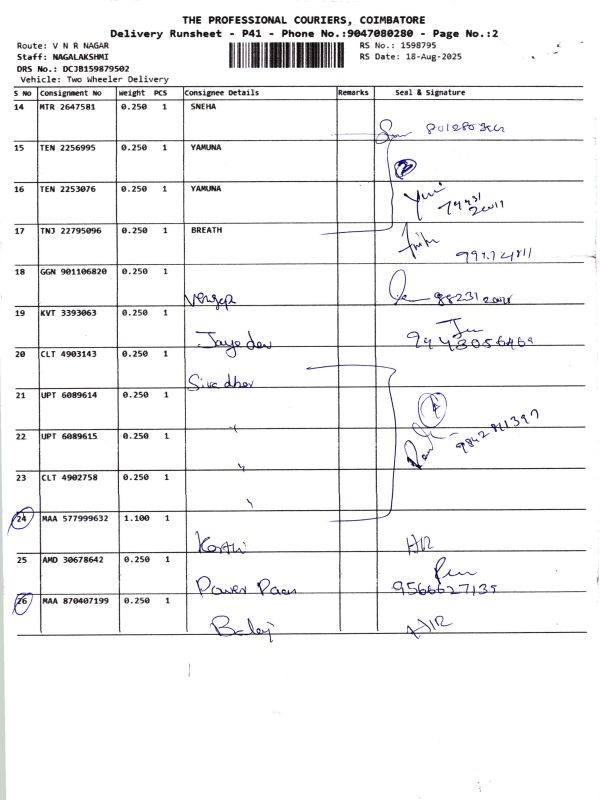 THE PROFESSIONAL COURIERS, COIMBATORE
Delivery Runsheet - P41 - Phone No.:9047080280 - Page No.:2
Route: V N R NAGAR
RS No.: 1598795
Staff: NAGALAKSHMI
RS Date: 18-Aug-2025
DRS No.: DCJB159879502
Vehicle: Two Wheeler Delivery
S No Consignment No Weight PCS Consignee Details Remarks Seal & Signature
14 MTR 2647581 0.250 1 SNEHA
15 TEN 2256995 0.250 1 YAMUNA
16 TEN 2253076 0.250 1 YAMUNA
17 TNJ 22795096 0.250 1 BREATH
18 GGN 901106820 0.250 1
19 KVT 3393063 0.250 1
Jayadev
20 CLT 4903143 0.250 1
21 UPT 6089614 0.250 1
22 UPT 6089615 0.250 1
23 CLT 4902758 0.250 1
24 MAA 577999632 1.100 1
25 AMD 30678642 0.250 1
Power 9566627135
26 MAA 870407199 0.250 1
Balaji